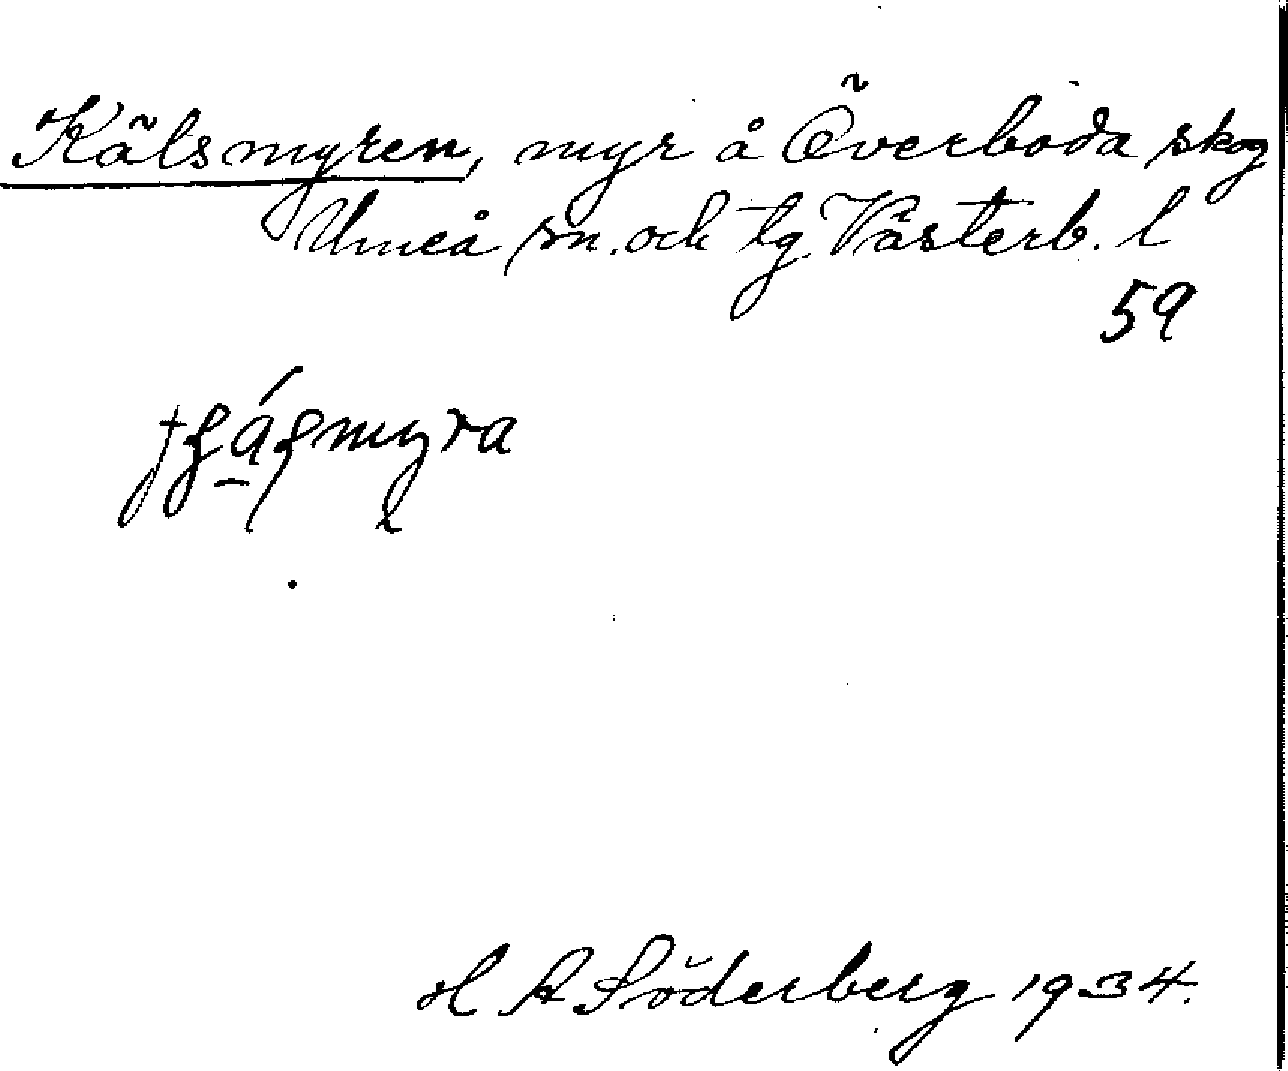 Kälsmyren, myr å Överboda skog
Umeå sn. och tg Västerb. l
59
H A Söderberg 1934.